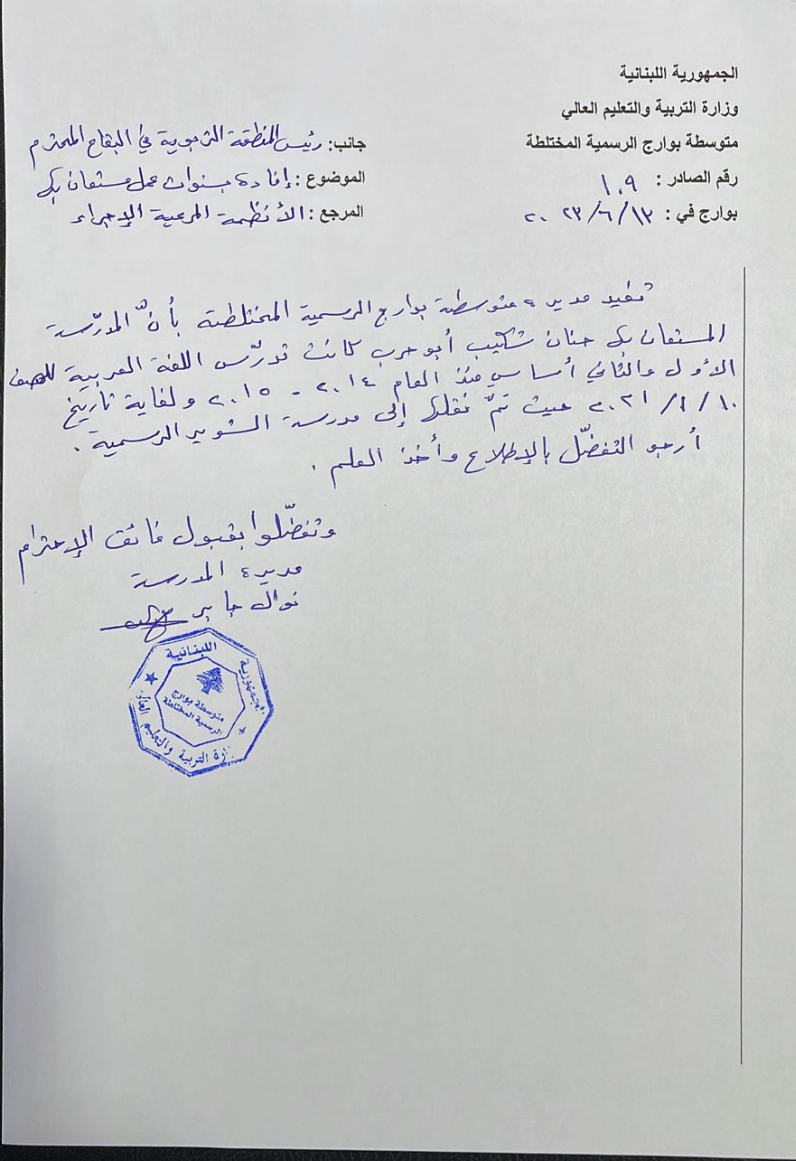 الجمهورية اللبنانية
وزارة التربية والتعليم العالي
متوسطة بوارج الرسمية المختلطة
رقم الصادر : ١٠٩
بوارج في : ١٣/٦/٢٠٢٣
جانب: رئيس المنطقة التربوية في البقاع المحترم
الموضوع : إفادة بسنوات عمل مستعان بها
المرجع : الأنظمة المرعية الإجراء
تفيد مديرة متوسطة بوارج الرسمية المختلطة بأنّ المدرّسة
المستعان بها حنان شكيب أبو حرب كانت تدرّس اللغة العربية للصف
الأول والثاني أساسي منذ العام ٢٠١٤ - ٢٠١٥ ولغاية تاريخ
١٠/١/٢٠٢١ حيث تمّ نقلها إلى مدرسة الرسمية.
أرجو التفضّل بالإطلاع وأخذ العلم.
وتفضّلوا بقبول فائق الإحترام
مديرة المدرسة
نوال جابر
الجمهورية اللبنانية
متوسطة بوارج
الرسمية المختلطة
وزارة التربية والتعليم العالي